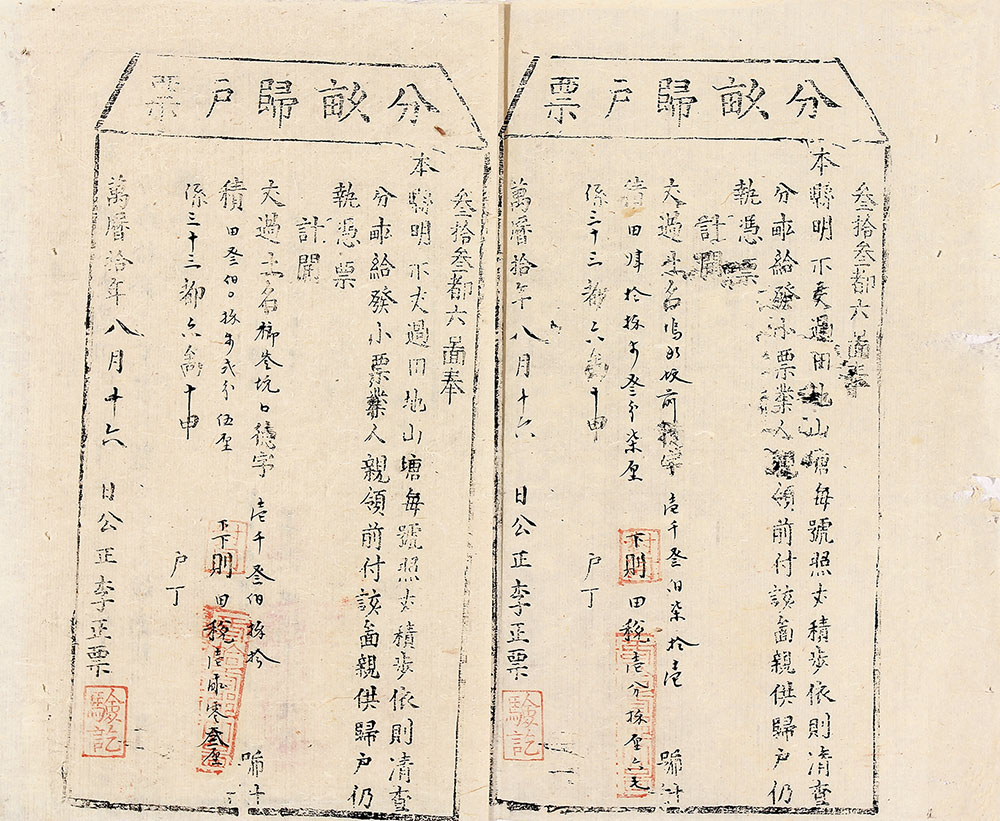 分畝歸戶票
叁拾叁都六啚奉
本縣明示丈過田地山塘每號照丈積步依則清查
分畝給發小票業人親領前付該啚親供歸戶仍
執憑票
計開
丈過土名 前 字 壹千叁伯柒拾壹 號計
積田 拾 步叁分柒厘 下下則田稅壹分 厘六毛
係三十三都六啚十甲 戶丁
萬曆拾年八月十六日公正李正票
驗訖
分畝歸戶票
叁拾叁都六啚奉
本縣明示丈過田地山塘每號照丈積步依則清查
分畝給發小票業人親領前付該啚親供歸戶仍
執憑票
計開
丈過土名 坑口 字 壹千叁伯 拾 號計
積田叁伯 步弍分伍厘 下下則田稅壹畝零叁厘
係三十三都六啚十甲 戶丁
萬曆拾年八月十六日公正李正票
驗訖